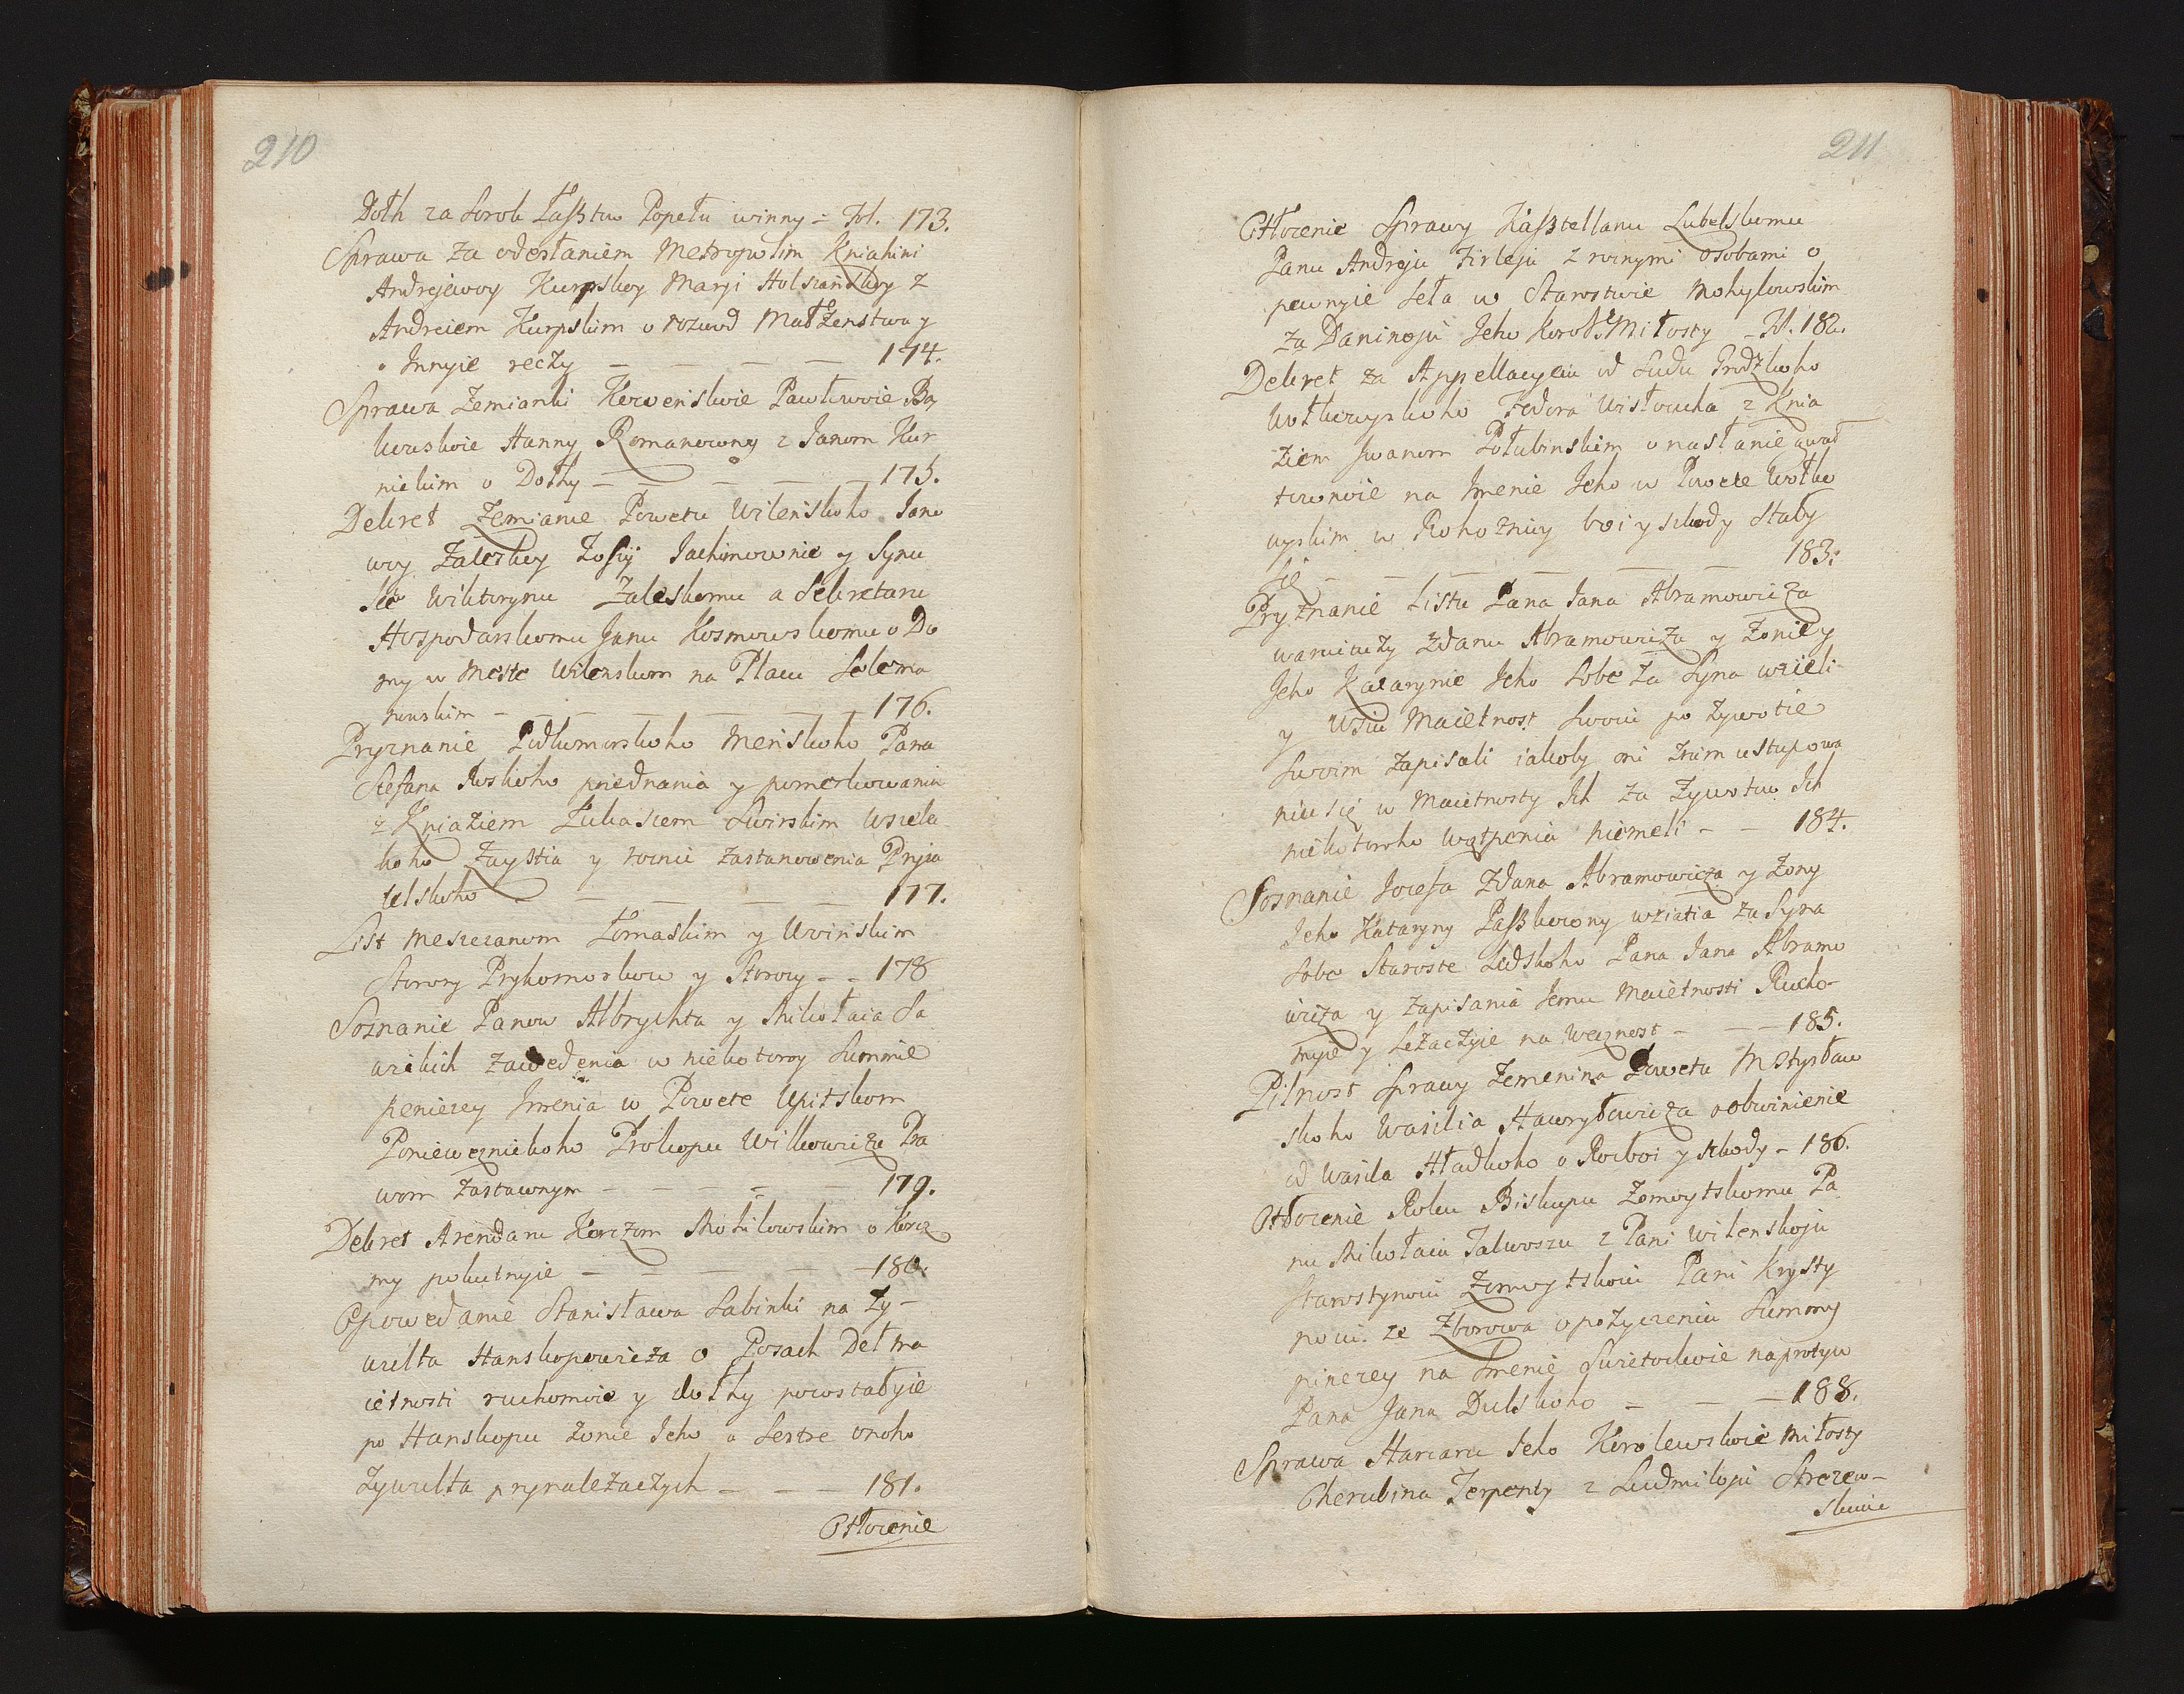 210
Dołh za sorok Łaßtw Popełu winny - Fol. 173.
Sprawa za odesłaniem Metropolim Kniahini
Andrejewoy Kurpskoy Maryi Holszańskoy z
Andreiem Kurpskim o rozwod Małżenstwa y
o Innyie reczy - - - - 174.
Sprawa Zemianki Kowenskoie Pawłowoie Ba
kowskoie Hanny Romanowny z Janom Kur
nickim o Dołhy - - - - 175.
Dekret Zemiance Powetu Wilenskoho Jano
woy Zaleskoy Zofij Jachimownie y Synu
Jeê Wiktorynu Zaleskomu a Sekretaru
Hospodarskomu Janu Kosmowskomu o Do
my w Meste Wilenskom na Placu Solema
nowskim - - - - - 176.
Pryznanie Podkomorskoho Menskoho Pana
Stefana Jeskoho poiednania y pomerkowania
z Kniaziem Łukaszem Swirskim wszela
koho Zaystia y rocnic zastanowenia Pryia
telskoho - - - - - 177.
List Meszczanom Łomaskim y Woinskim
Storony Prykomorkow y Storozy - - 178
Soznanie Panow Albrychta y Mikołaia Sa
wickich zawedenia w niekotoroy Summie
peniezey Imenia w Powete Upitskom
Ponieweznickoho Prokopu Wilkowiczu Pra
wom Zastawnym - - - - - 179.
Dekret Arendaru Korczom Mohilowskim o Korcz
my pokutnyie - - - - 180.
Opowedanie Stanisława Sabinki na Zy-
welta Hanskopowicza o Posach Det ma
ietnosti ruchomoie y dołhy pozostałyie
po Hanskopu Zonie Jeho a Sestre onoho
Zywelta prynalezaczych - - - 181.
Otłozenie
211
Otłozenie Sprawy Kaßtellanu Lubelskomu
Panu Andreju Firleju z roinymi osobami o
pewnyie Seła w Starostwie Mohylowskim
za Daninoju Jeho Korol. Miłosty - Fol. 182.
Dekret za Appellacyeiu od Sudu Grodzkoho
Wołkowyskoho Fedora Wisłoucha z Knia
ziem Iwanom Połubinskim o nasłanie gwał
townoie na Imenie Jeho w Powete Wołko
wyskim w Rohoznicy boi y szkody staly
się - - - - - 183.
Pryznanie Listu Pana Jana Abramowicza
warujuczy Zdanu Abramowiczu y Zonie y
Jeho Katarynie Jeho Sobe za Syna wzieli
y wsiu Maietnost swoiu po Zywotie
swoim zapisali iakoby oni z nim ustupowa
niu się w Maietnosty Ich za Zywotu Ich
niekotoroho wątpenia niemeli - - 184.
Soznanie Jozefa Zdana Abramowicza y Zony
Jeho Kataryny Paßkowny wziatia za Syna
Sobe Staroste Lidskoho Pana Jana Abramo
wicza y zapisania Jemu Maietnosti Rucho-
myie y Lezaczyie na wecznost - - - 185.
Pilnost Sprawy Zemenina Powetu Mstysław
skoho Wasilia Hawryłowicza o obwinienie
od Wasila Hładkoho o Rozboi y szkody - 186.
Otłozenie Roku Biskupu Zomoytskomu Pa
nu Mikołaiu Talwoszu z Pani Wilenskoju
Starostynoiu Zomoytskoiu Pani Krysty
noiu ze Zborowa o pozyczeniu Summy
pinezey na Imenie Swietockoie naprotyw
Pana Jana Dulskoho - - - 188.
Sprawa Harcaru Jeho Korolewskoie Miłosty
Cherubina Terpenty z Ludmiloju Strczew-
skuiu